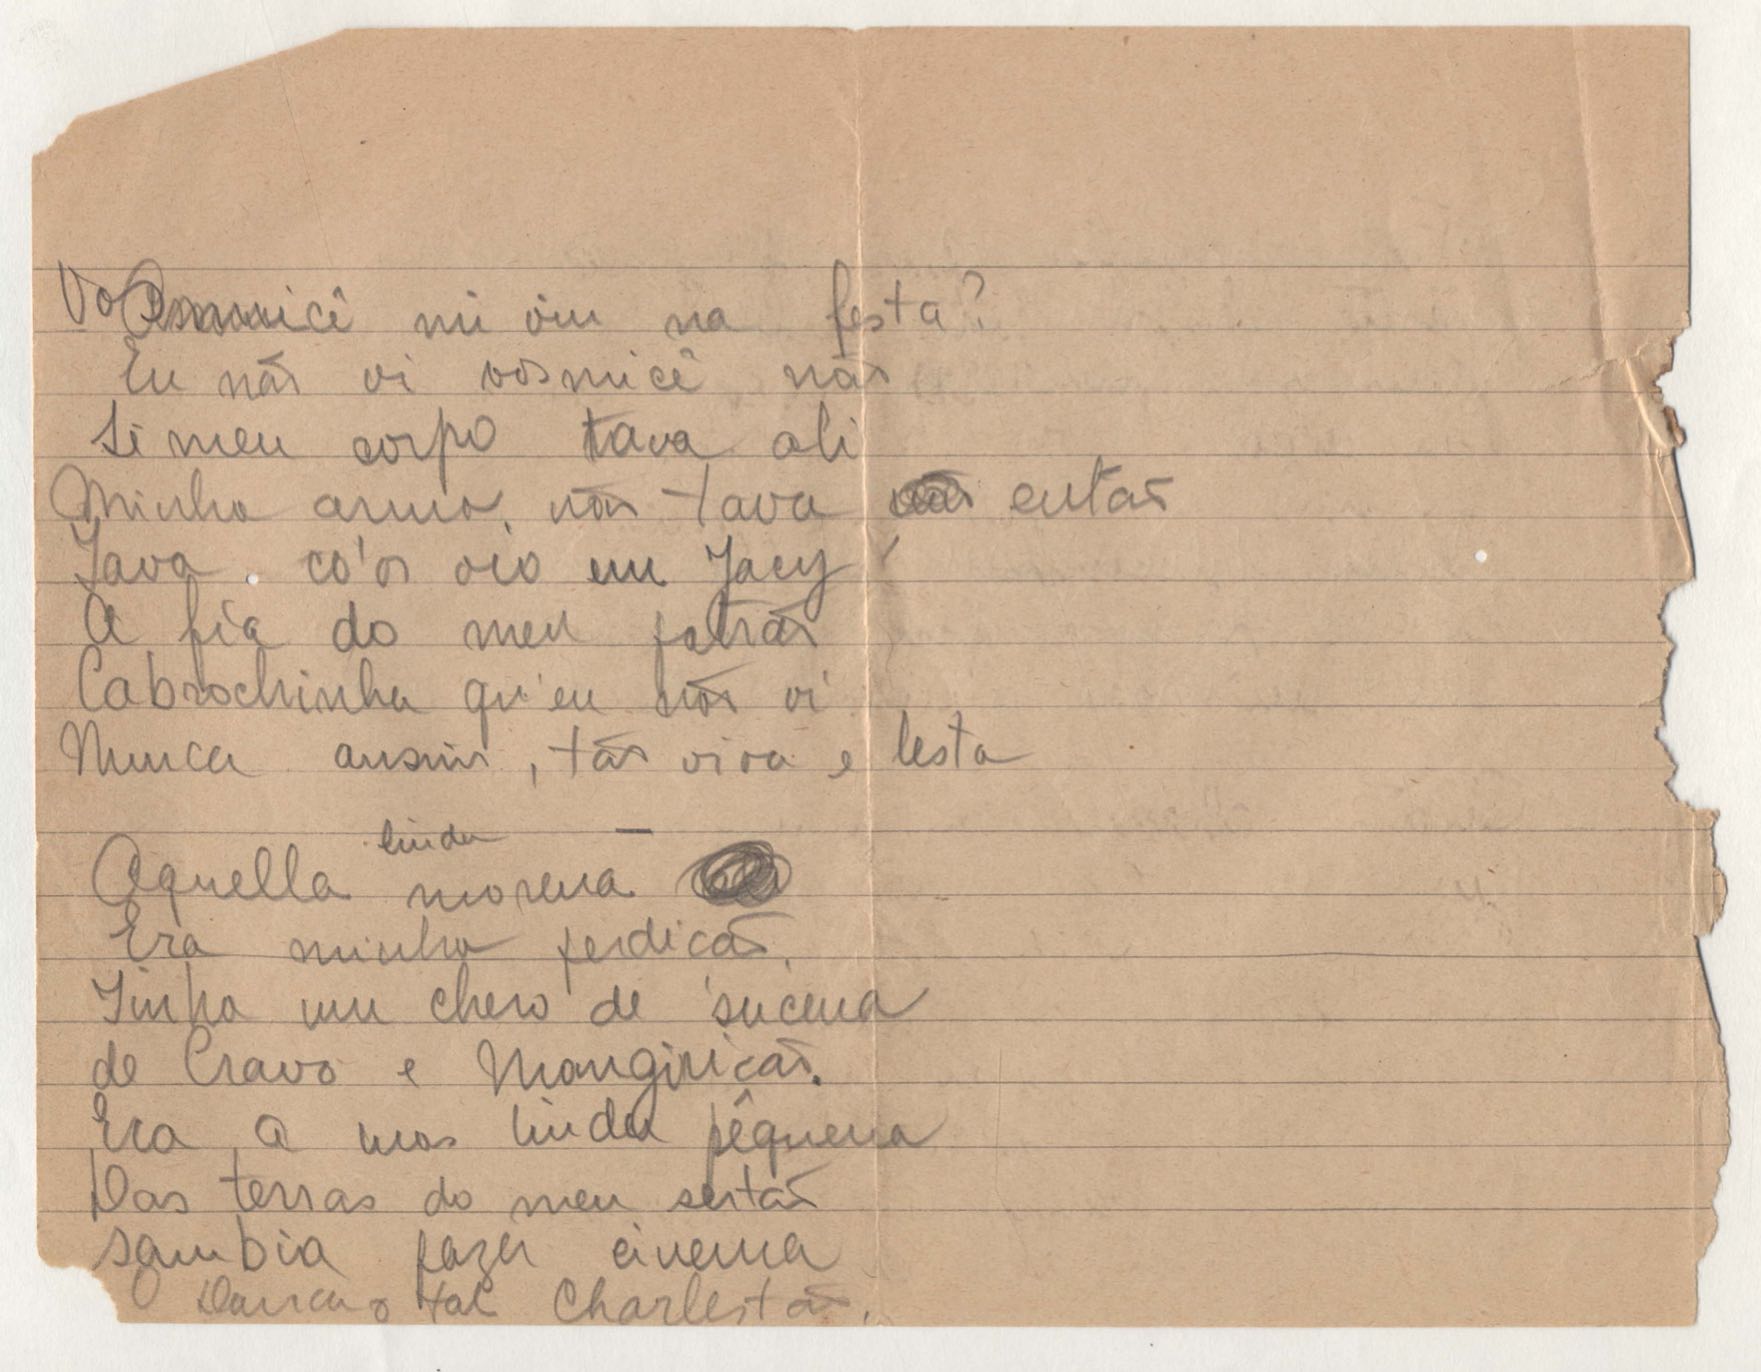 Vosmicê mi viu na festa?
Eu não vi vosmicê não
Si meu corpo tava ali
Minha arma, não tava então
Tava co'os oio em Jacy
A fia do meu patrão
Cabrochinha qu'eu não vi
Nunca ansim, tão viva e lesta
—
Aquella linda morena
Era minha perdicão,
Tinha um chero de 'sucena
de Cravo e Mangiricão.
Era a mas linda pêquena
Das terras do meu sertão
Sambia fazer cinema
Dançar o tal Charlestão.